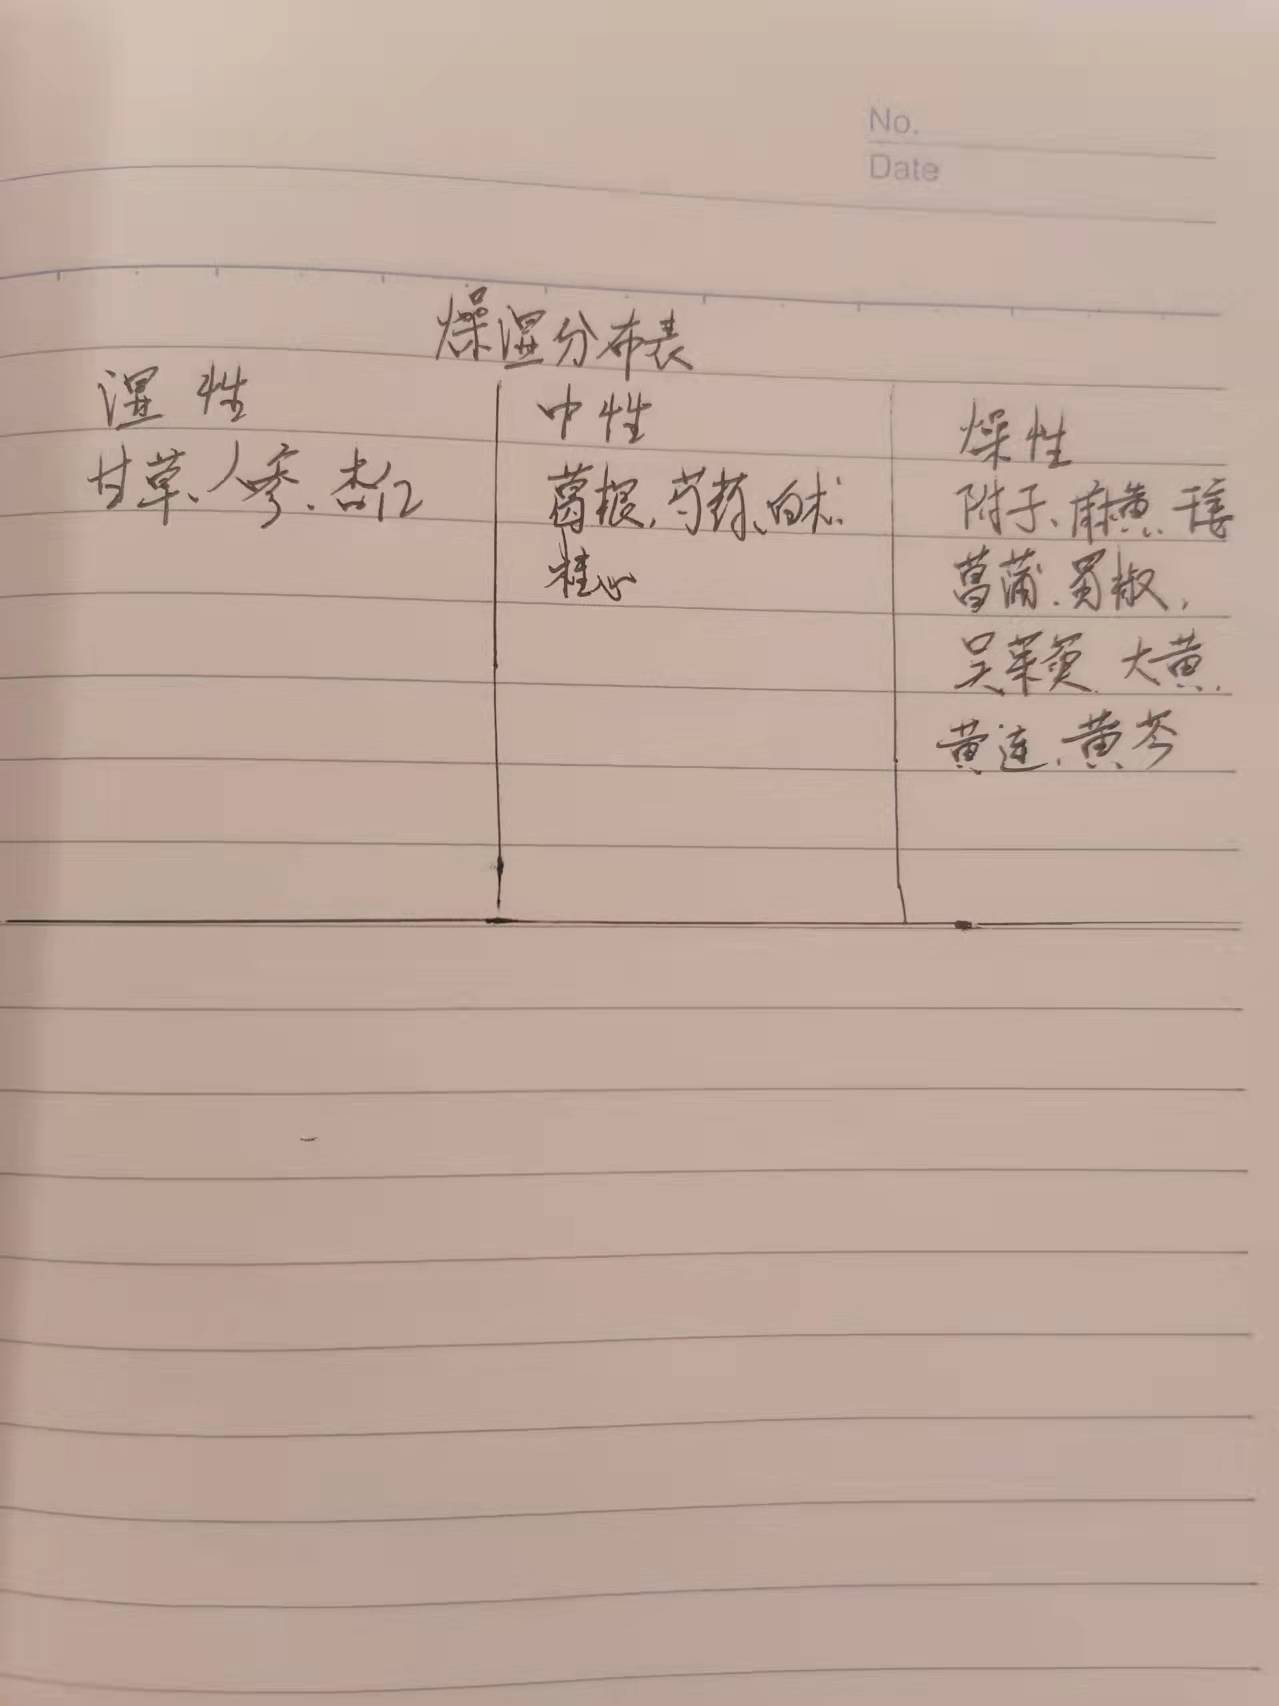 No.
Date
燥湿分布表
湿性
甘草、人参、杏仁
中性
葛根、芍药、白术
桂心
燥性
附子、麻黄、干姜
菖蒲、蜀椒,
吴茱萸、大黄、
黄连、黄芩